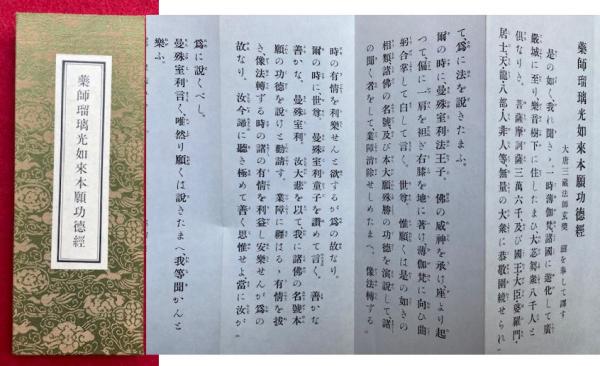 藥師瑠璃光如來本願功德經
藥師瑠璃光如來本願功德經
大唐三藏法師玄奘 詔を奉して譯す
是の如く我れ聞きき。一時薄伽梵諸國に遊化して廣
嚴城に至り樂音樹下に住したまひ、大苾芻衆八千人と
俱なりき。菩薩摩訶薩三萬六千及び國王大臣、婆羅門、
居士、天龍八部、人非人等、無量の大衆に恭敬圍繞せられ
て、爲に法を說きたまふ。
爾の時に、曼殊室利法王子。佛の威神を承け座より起
つて偏に一肩を袒ぎ右膝を地に著け、薄伽梵に向ひ曲
躬合掌して白して言く。世尊、惟願くは是の如きの
相類諸佛の名號及び本大願殊勝の功德を演說して諸
の聞く者をして業障消除せしめたまへ。像法轉する
時の有情を利樂せんと欲するが爲の故なり。
爾の時に、世尊。曼殊室利童子を讃めて言く。善かな
善かな。曼殊室利。汝大悲を以て我に諸佛の名號本
願の功德を說けと勸請す。業障に纏はるゝ有情を拔
き、像法轉する時の諸の有情を利益し安樂せんが爲の
故なり。汝今諦に聽き極めて善く思惟せよ、當に汝が
爲に說くべし。
曼殊室利言く、唯然り願くは說きたまへ、我等聞かんと
樂ふ。